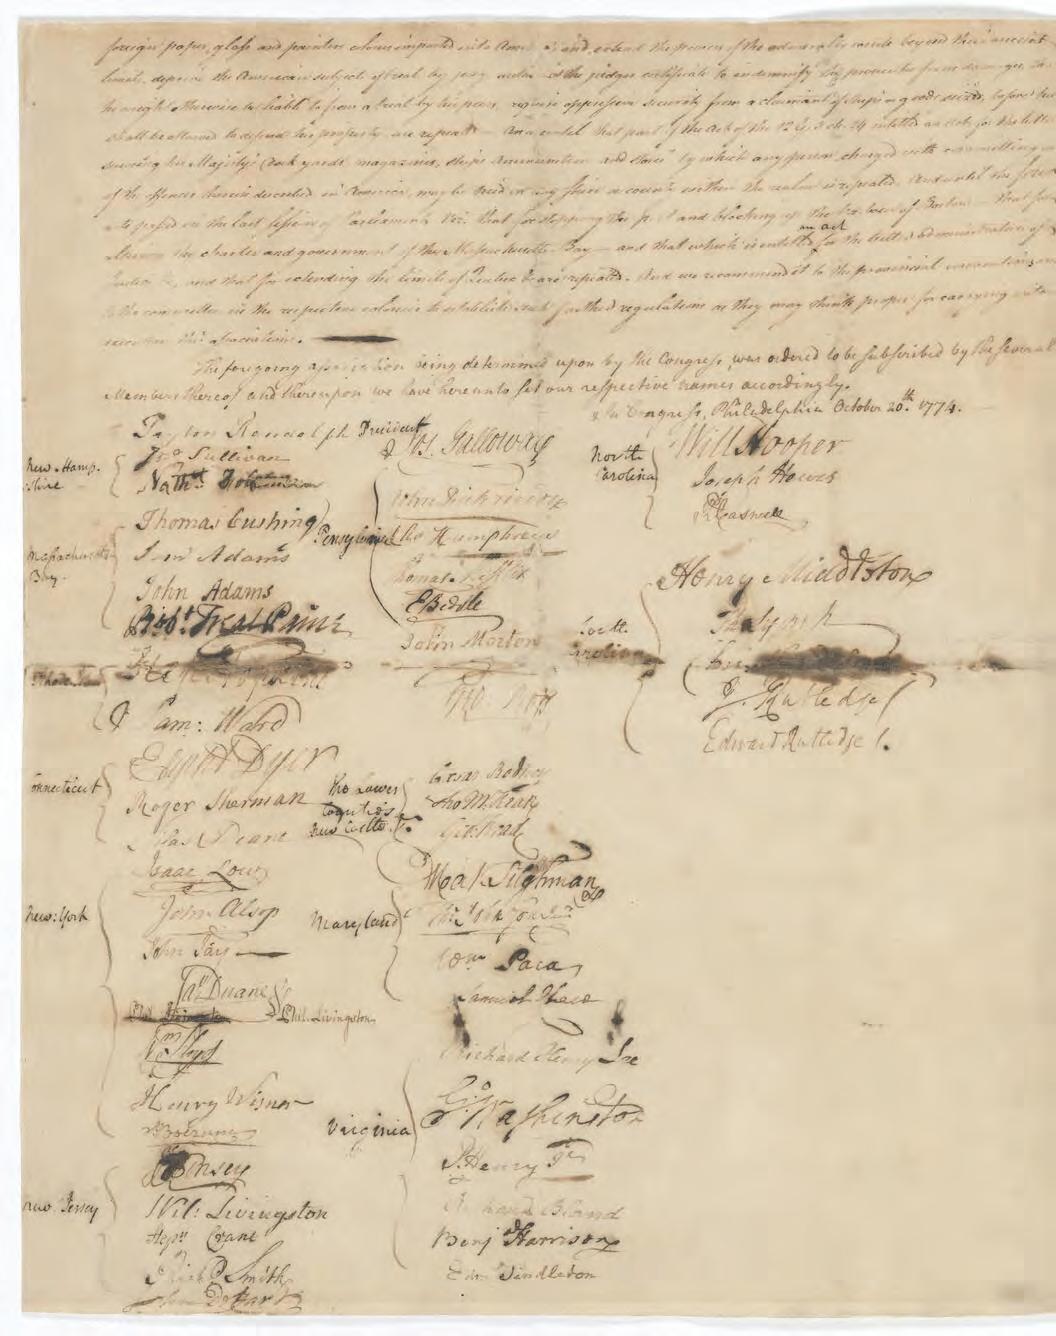 foreign paper, glass and painters colours imported into America and extend the powers of the admiralty courts beyond their ancient
limits, deprive the American subject of trial by jury authorise the judges certificate to indemnify the prosecutor from damages, that
he might otherwise be liable to from a trial by his peers, require oppressive security from a claimant of ships or goods seized, before he
shall be allowed to defend his property, are repealed. And until that part of the act of the 12 G. 3 ch. 24 entitled an act for the better
securing his Majesty's dock yards, magazines, ships ammunition and stores by which any person charged with committing any
of the offences therein described in America, may be tried in any shire or county within the realm is repealed. And until the four
acts passed in the last session of Parliament Viz. that for stopping the port and blocking up the harbour of Boston — that for
altering the charter and government of the Massachusetts-Bay — and that which is entitled an act for the better administration of
Justice &c. and that for extending the limits of Quebec &c are repealed. And we recommend it to the provincial conventions and
to the committees in the respective colonies to establish such farther regulations as they may think proper for carrying into
execution this association.
The foregoing association being determined upon by the Congress, was ordered to be subscribed by the several
Members thereof and thereupon we have hereunto set our respective names accordingly.
In Congress, Philadelphia October 20.th 1774.
Peyton Randolph President
New-Hamp-
shire
Jno Sullivan
Nathl. Folsom
Massachusetts
Bay.
Thomas Cushing
Saml Adams
John Adams
Robt. Treat Paine
Step Hopkins
Sam: Ward
Connecticut
Elipht Dyer
Roger Sherman
Silas Deane
New-York
Isaac Low
John Alsop
John Jay
Jas. Duane
Phil. Livingston
Wm Floyd
Henry Wisner
S: Boerum
New Jersey
J. Kinsey
Wil: Livingston
Stepn Crane
Richd. Smith
John De Hart
Pensylvania
Jos. Galloway
John Dickinson
Cha Humphreys
Thomas Mifflin
E Biddle
John Morton
Geo: Ross
The Lower
Counties
New Castle
Caesar Rodney
Tho M:Kean
Geo: Read
Maryland
Mat Tilghman
Ths Johnson Junr
Wm Paca
Samuel Chase
Virginia
Richard Henry Lee
Go Washington
P. Henry Jr
Richard Bland
Benj Harrison
Edm Pendleton
North
Carolina
Will Hooper
Joseph Hewes
R Caswell
South
Carolina
Henry Middleton
Tho Lynch
J. Rutledge
Edward Rutledge